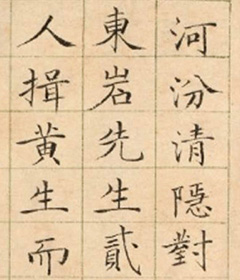 河汾清隱對
東岩先生貳
人揖黄生而